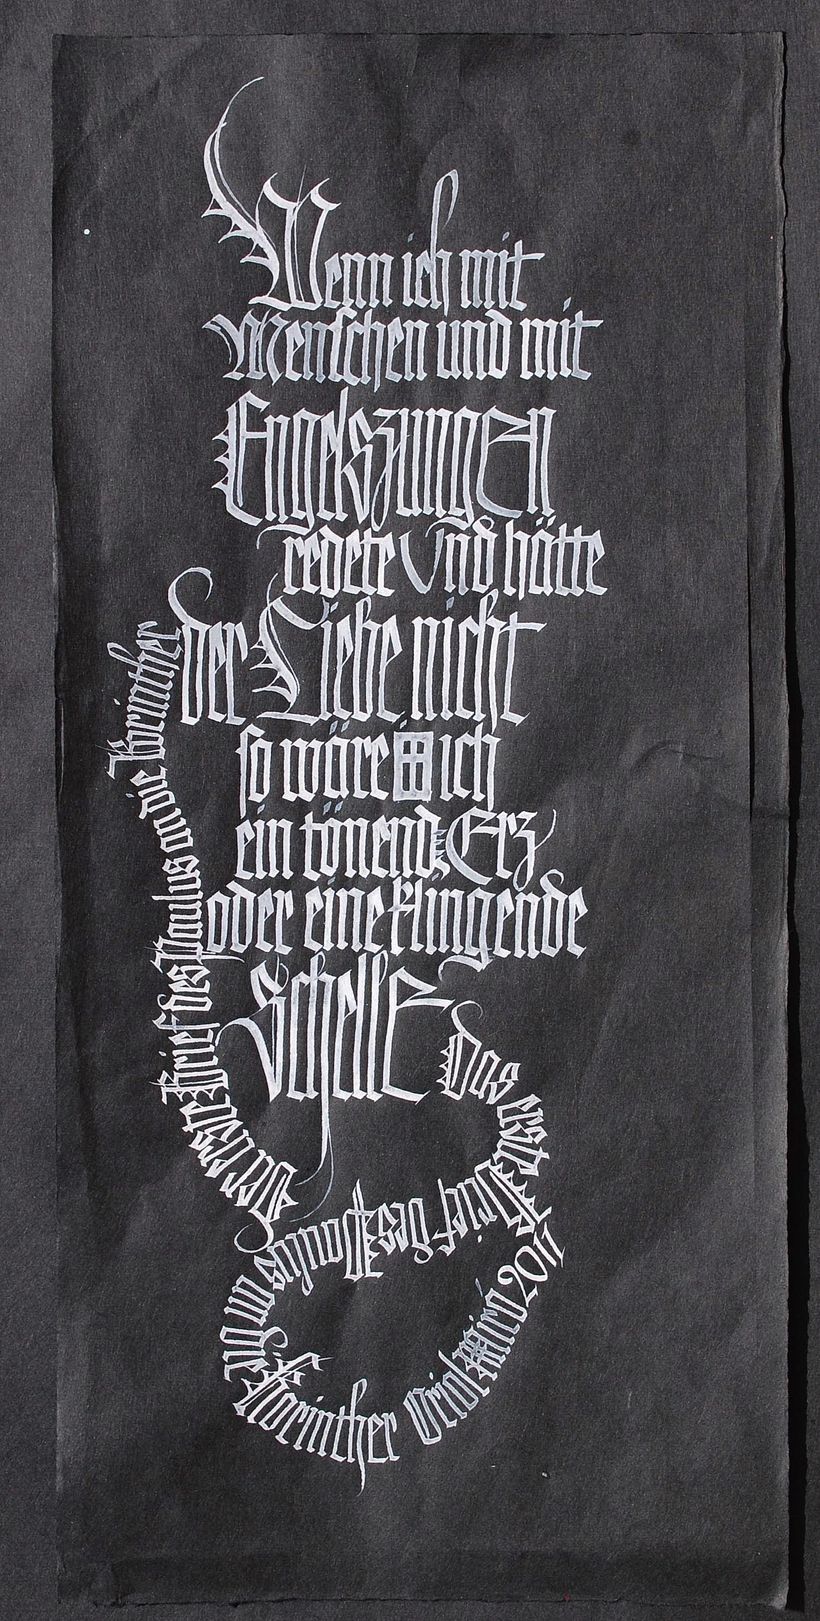 Wenn ich mit
Menschen und mit
Engelszungen
redete und hätte
der Liebe nicht
so wäre ich
ein tönend Erz
oder eine klingende
Schelle
der erste Brief des Paulus an die Korinther
Das erste Brief des Paulus an die Korinther Oriol Miró 2011